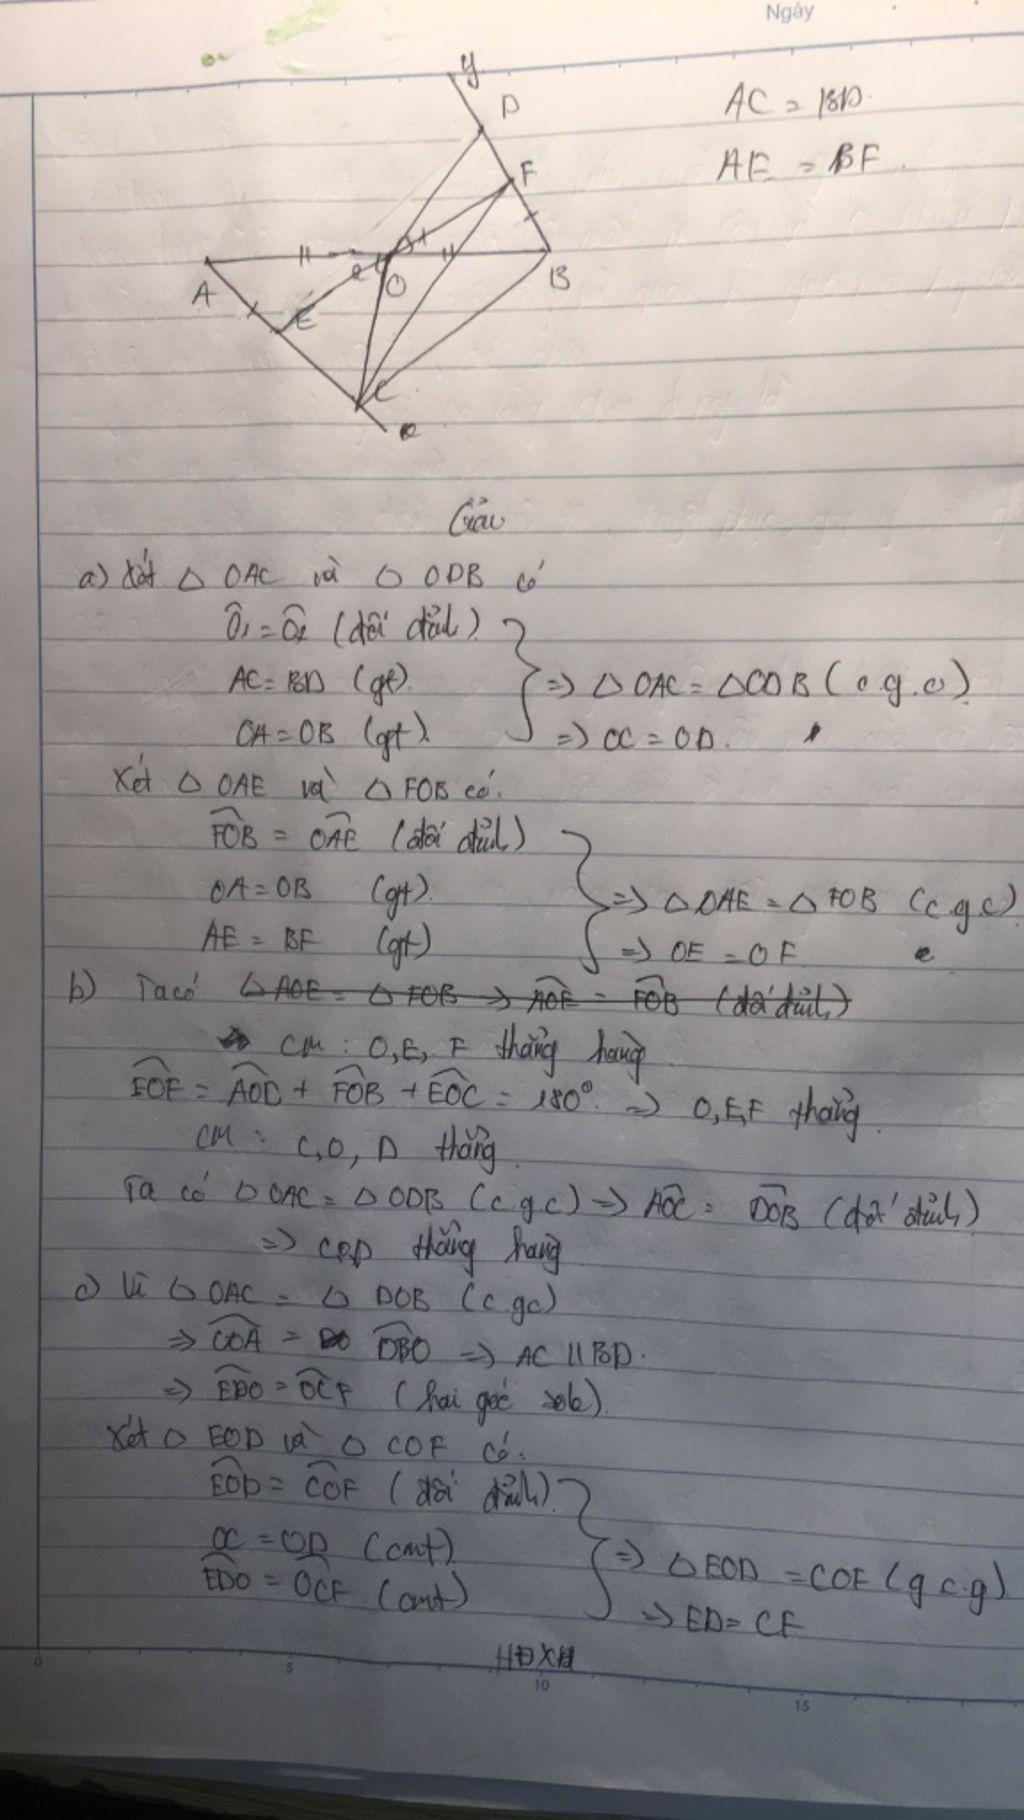 Ngày
y
D
AC = BD.
F
AE = BF.
A
O
B
E
C
Giải
a) Xét △ OAC và △ ODB có
Ô1 = Ô2 (đối đỉnh)
AC = BD (gt)
⇒ △ OAC = △ODB (c.g.c)
OA = OB (gt).
⇒ OC = OD.
Xét △ OAE và △ FOB có.
FOB = OAE (đối đỉnh)
OA = OB (gt).
⇒ △ OAE = △ FOB (c.g.c)
AE = BF (gt)
⇒ OE = OF
b) Ta có △ AOE = △ FOB ⇒ AOE = FOB (đối đỉnh)
CM : O, E, F thẳng hàng
EOF = AOC + FOB + EOC = 180°. ⇒ O,E,F thẳng.
CM : C, O, D thẳng.
Ta có △ OAC = △ ODB (c.g.c) ⇒ AOC = DOB (đối đỉnh)
⇒ COD thẳng hàng
c) Vì △ OAC = △ DOB (c gc)
⇒ COA = DBO ⇒ AC // BD.
⇒ EDO = OCF (hai góc).
Xét △ EOD và △ COF có.
EOD = COF (đối đỉnh).
OC = OD (cmt)
⇒ △ EOD = COF (g.c.g)
EDO = OCF (cmt)
⇒ ED = CF
0
5
10
15